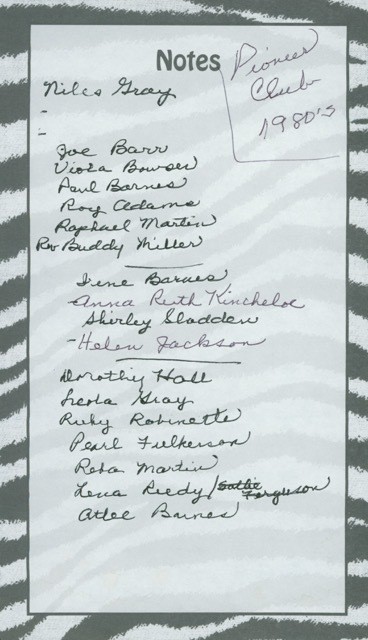 Notes
Pioneer
Club
1980's
Niles Gray
-
-
Joe Barr
Viola Bowser
Paul Barnes
Roy Adams
Raphael Martin
Rev Buddy Miller
Irene Barnes
-Anna Ruth Kincheloe
Shirley Sladden
-Helen Jackson
Dorothy Hall
Leola Gray
Ruby Robinette
Pearl Fulkerson
Reba Martin
Lena Reedy/Sallie Ferguson
Atlee Barnes